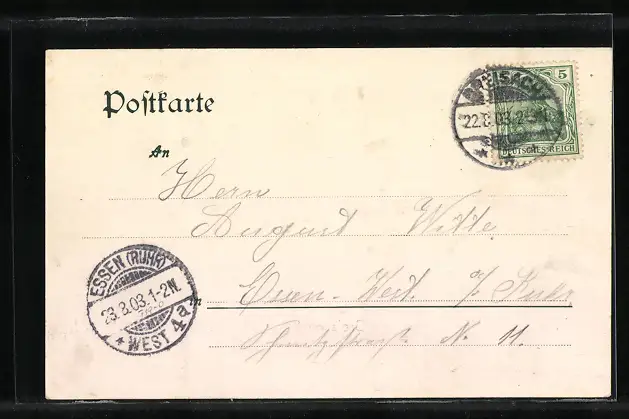 Postkarte
BREISACH
22.8.03.2-
5
DEUTSCHES REICH
An
Herrn
August Witte
in Essen-West. a/Ruhr
N. 11.
ESSEN (RUHR)
23.8.03.1-2N.
* WEST 4a